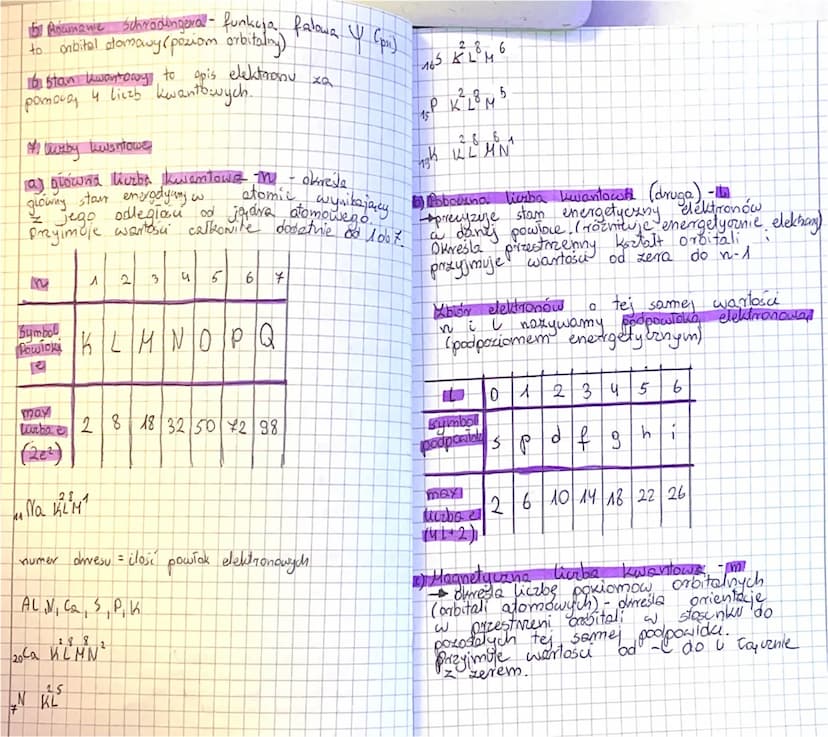 5) Równanie Schrödingera - funkcja falowa Ψ (psi)
to orbital atomowy (poziom orbitalny)
6) Stan kwantowy to opis elektronu za
pomocą 4 liczb kwantowych.
7) Liczby kwantowe
a) główna liczba kwantowa - n - określa
główny stan energetyczny w atomie wynikający
z jego odległości od jądra atomowego.
Przyjmuje wartości całkowite dodatnie od 1 do 7.
n 1 2 3 4 5 6 7
Symbol
powłoki
e
K L M N O P Q
max
liczba e
(2e²)
2 8 18 32 50 72 98
₁₁Na K²L⁸M¹
numer okresu = ilość powłok elektronowych
AL, N, Ca, S, P, K
₂₀Ca K²L⁸M⁸N²
₇N K²L⁵
₁₆S K²L⁸M⁶
₁₅P K²L⁸M⁵
₁₉K K²L⁸M⁸N¹
b) Poboczna liczba kwantowa (druga) - L
→ precyzuje stan energetyczny elektronów
w danej powłoce. (rozróżnia energetycznie elektrony)
Określa przestrzenny kształt orbitali i
przyjmuje wartości od zera do n-1
Zbiór elektronów o tej samej wartości
n i L nazywamy podpowłoką elektronową
(podpoziomem energetycznym)
L 0 1 2 3 4 5 6
symbol
podpowłoki
s p d f g h i
max
liczba e
(4l+2)
2 6 10 14 18 22 26
c) Magnetyczna liczba kwantowa - m
→ określa liczbę poziomów orbitalnych
(orbitali atomowych) - określa orientację
w przestrzeni orbitali w stosunku do
pozostałych tej samej podpowłoki.
Przyjmuje wartości od -L do L łącznie
z zerem.